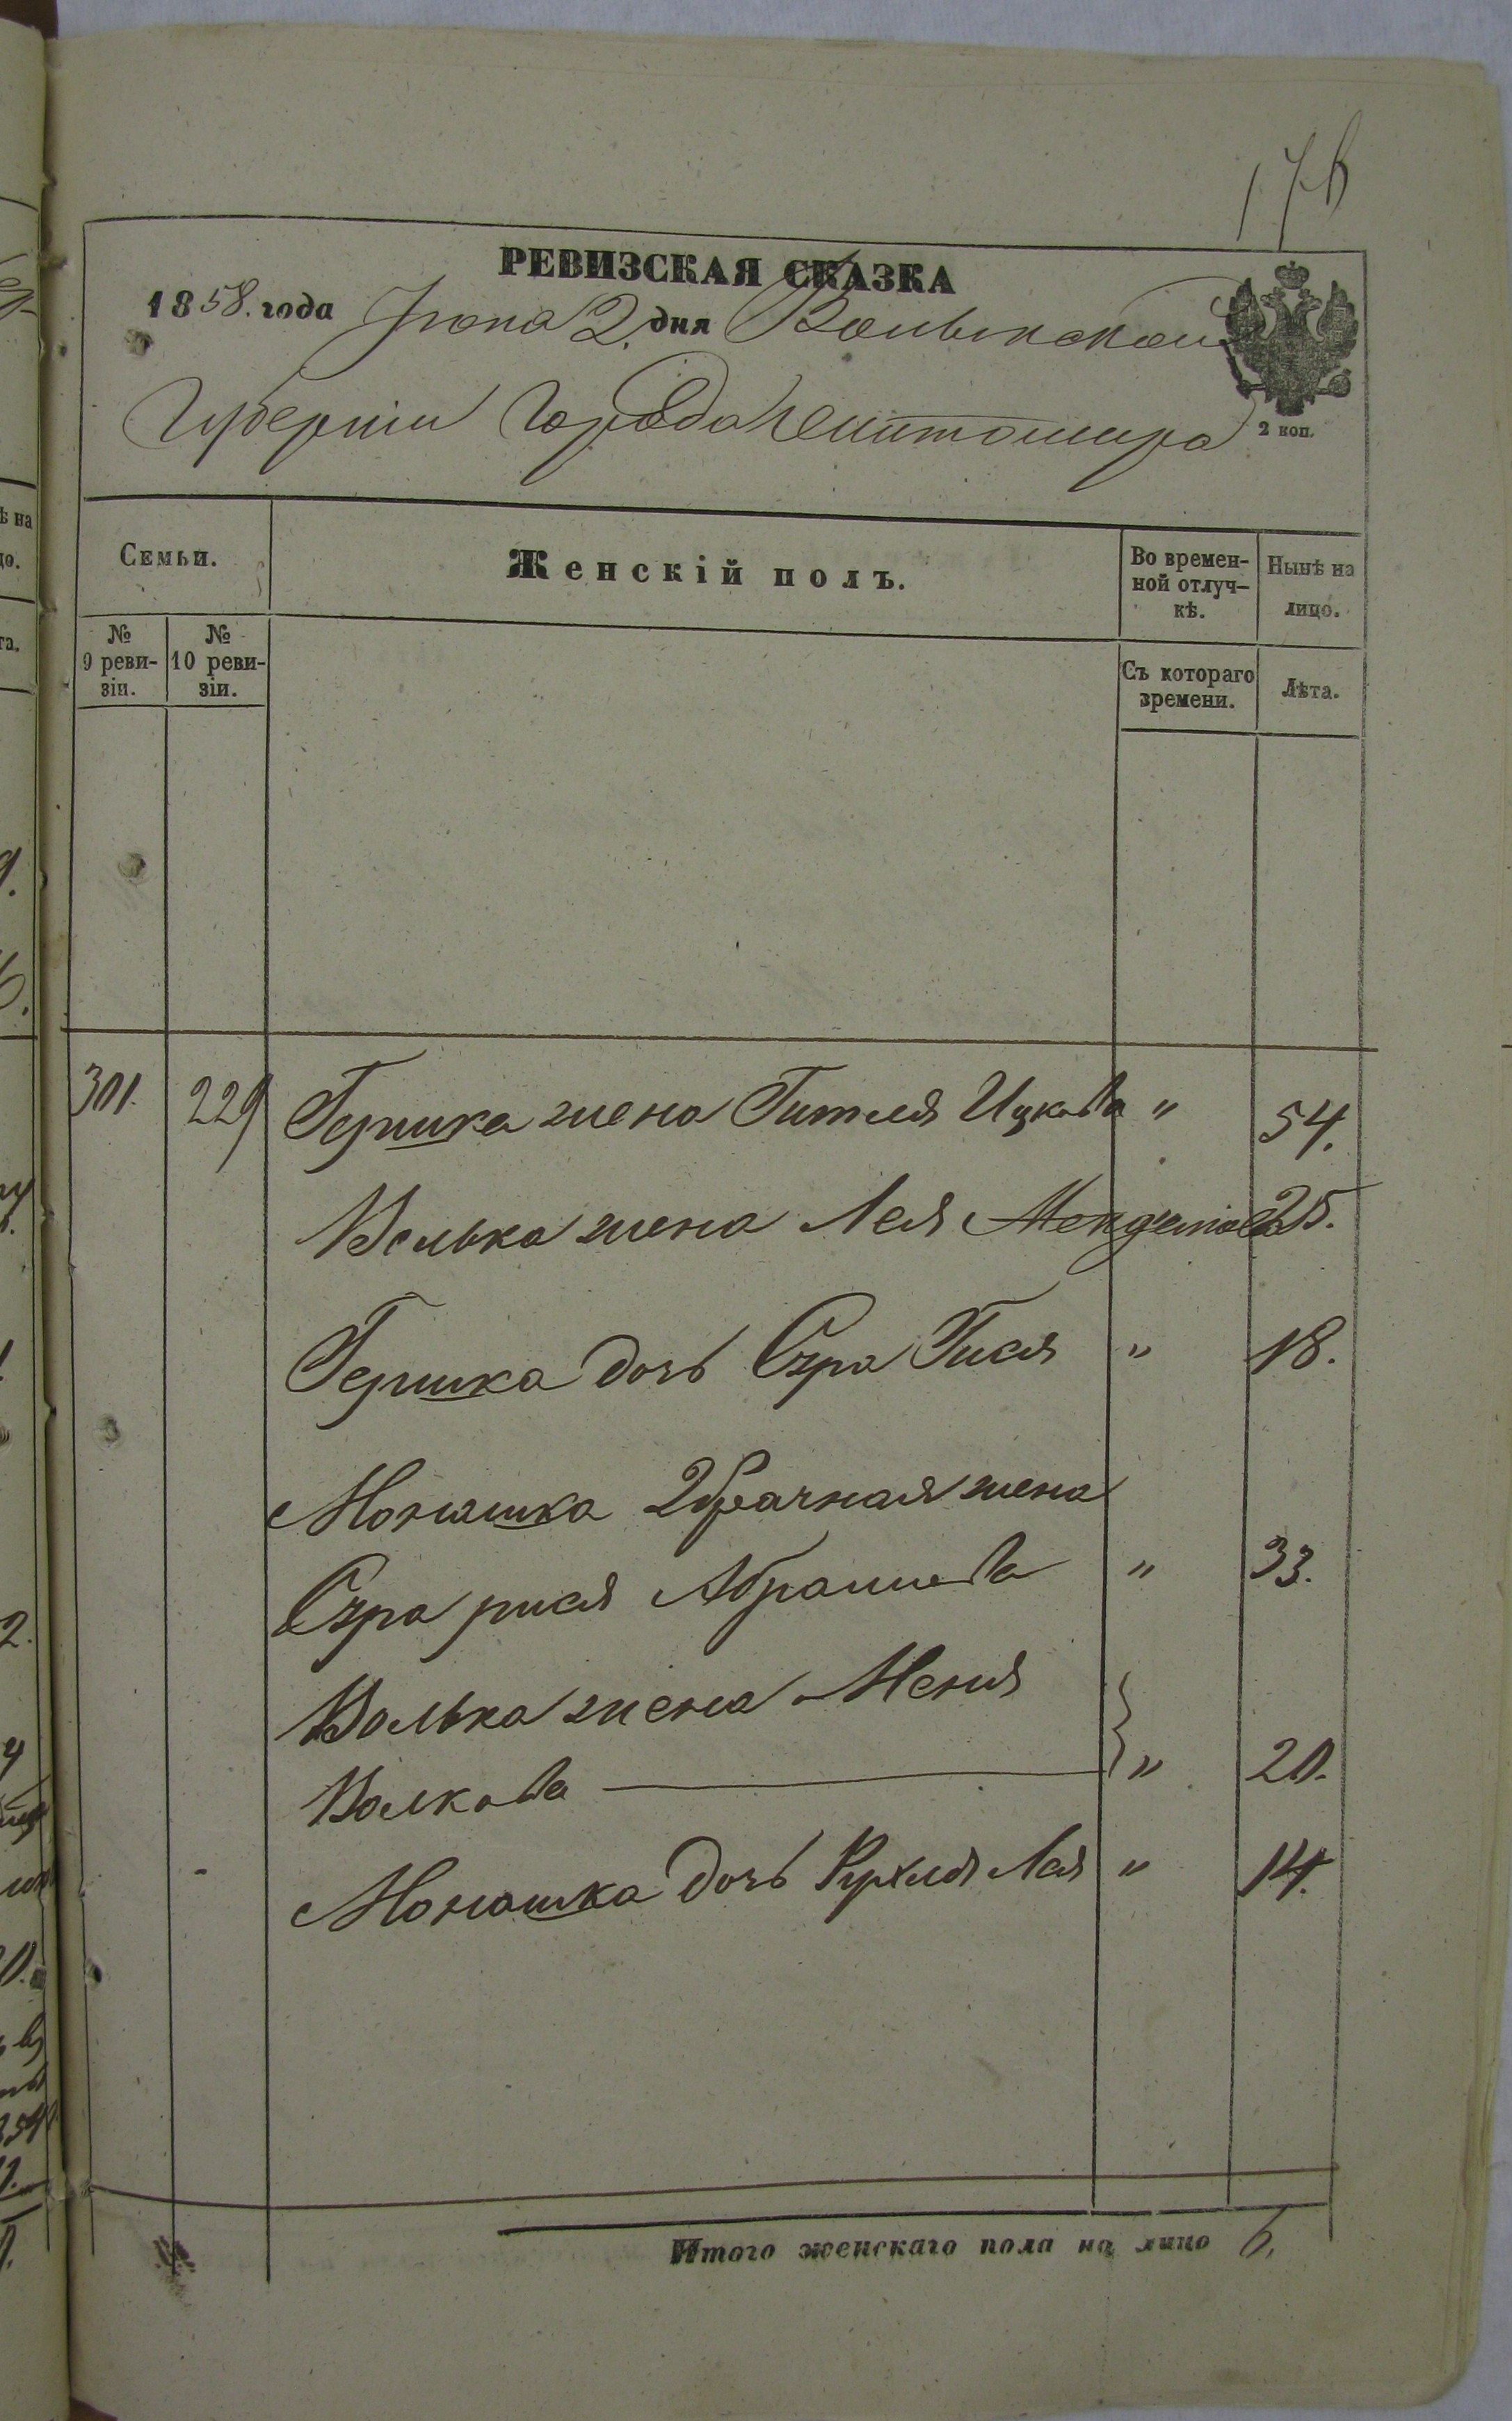 176
РЕВИЗСКАЯ СКАЗКА
1858. года Іюня 2. дня Волынской
Губерніи Города Житомира
2 коп.
Семьи.
Женскій полъ.
Во времен-
ной отлуч-
кѣ.
Нынѣ на
лицо.
№
9 реви-
зіи.
№
10 реви-
зіи.
Съ котораго
времени.
Лѣта.
301. 229 Гершка жена Гитля Ицкова " 54.
Волька жена Лея Менделова 25.
Гершка дочь Сура Гися " 18.
Моношка 2 брачная жена
Сура рися Абрамова " 33.
Волька жена Меня
Волкова " 20.
Моношка дочь Рухля Лея " 14.
Итого женскаго пола на лицо 6.